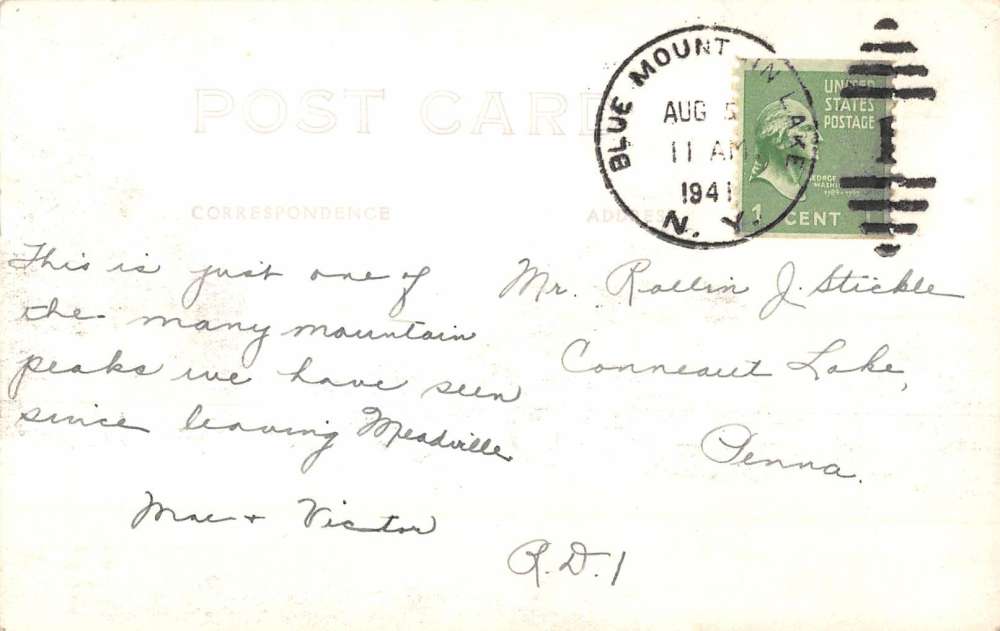 POST CARD
CORRESPONDENCE
ADDRESS
BLUE MOUNTAIN LAKE
AUG 5
11 AM
1941
N. Y.
UNITED
STATES
POSTAGE
GEORGE
WASHINGTON
1 CENT
This is just one of
the many mountain
peaks we have seen
since leaving Meadville
Mae + Victor
Mr. Rollin J. Stickle
Conneaut Lake,
Penna.
R.D. 1